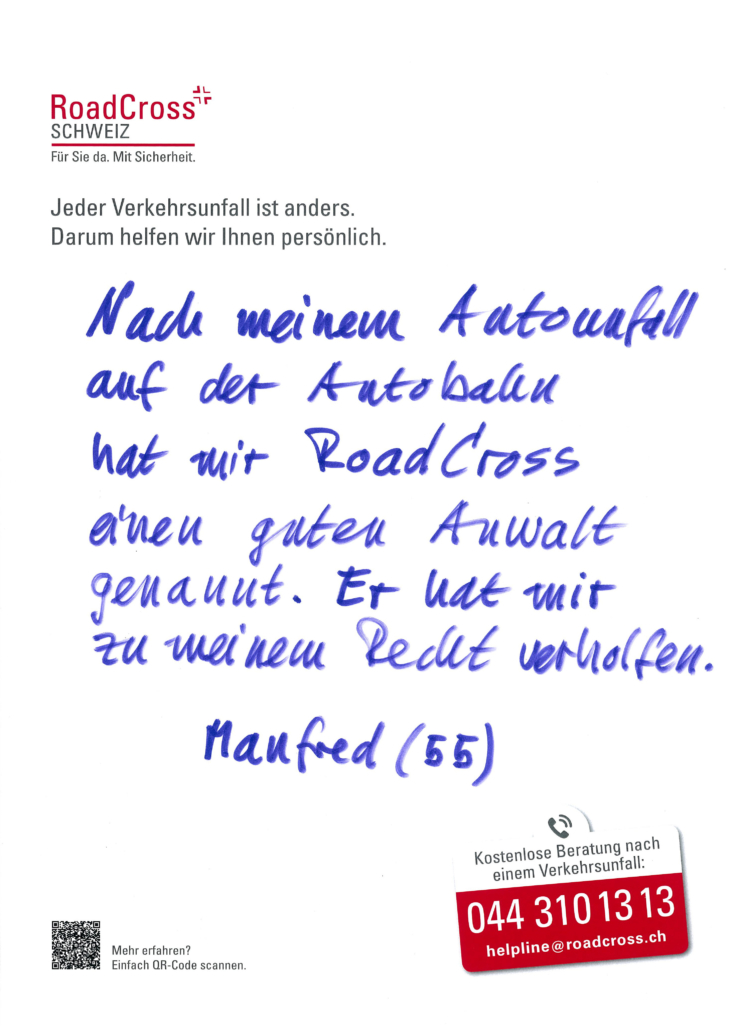 RoadCross
SCHWEIZ
Für Sie da. Mit Sicherheit.
Jeder Verkehrsunfall ist anders.
Darum helfen wir Ihnen persönlich.
Nach meinem Autounfall
auf der Autobahn
hat mir RoadCross
einen guten Anwalt
genannt. Er hat mir
zu meinem Recht verholfen.
Manfred (55)
Kostenlose Beratung nach
einem Verkehrsunfall:
044 310 13 13
helpline@roadcross.ch
Mehr erfahren?
Einfach QR-Code scannen.